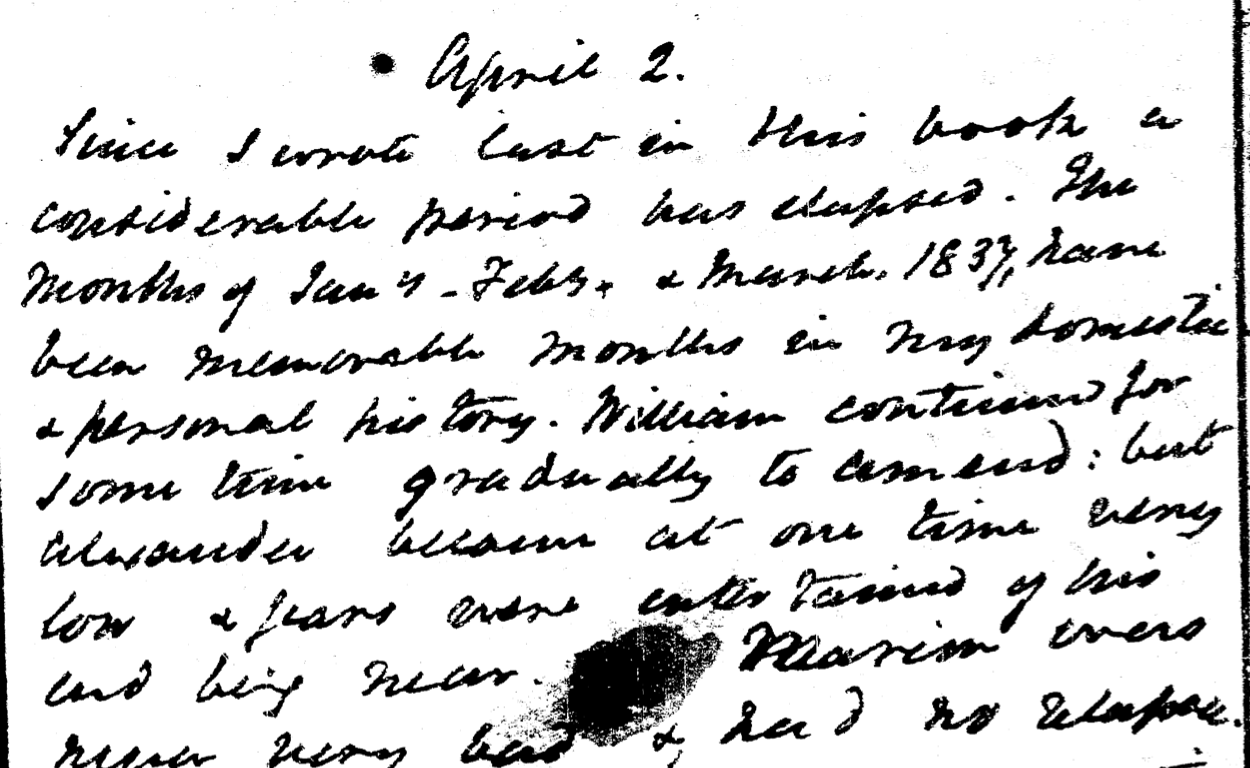 April 2.
Since I wrote last in this book a
considerable period has elapsed. The
months of Jany - Feby. & March. 1837, have
been memorable months in my domestic
& personal history. William continued for
some time gradually to amend: but
Alexander became at one time very
low & fears were entertained of his
end being near. Marion was
never very bad & had no relapse.